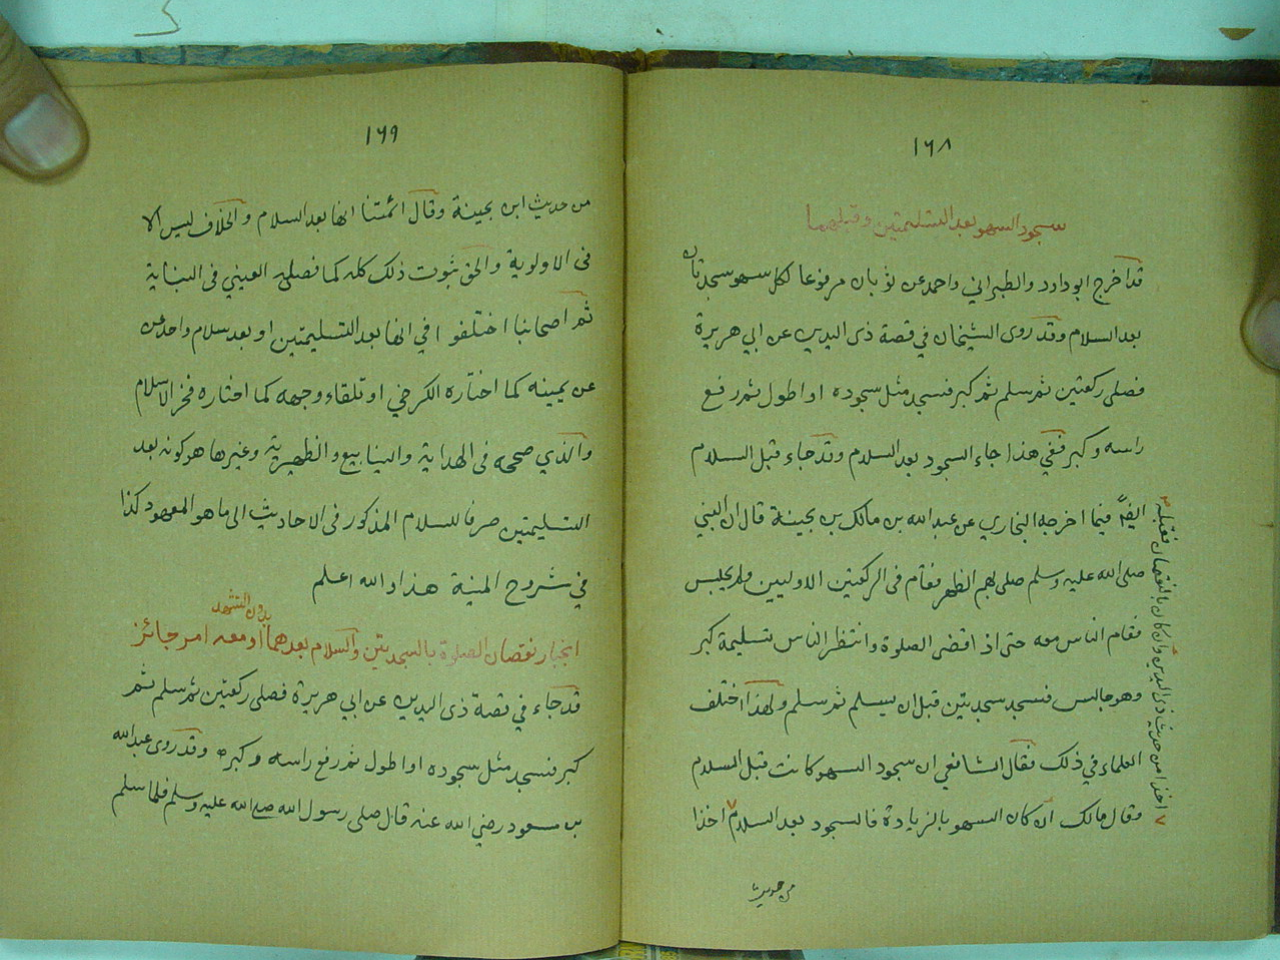 ١٦٨
سجود السهو بعد التسليمتين وقبلهما
قد اخرج ابو داود والطبراني واحمد عن ثوبان مرفوعا لكل سهو سجدتان
بعد السلام وقد روى الشيخان في قصة ذى اليدين عن ابي هريرة
فصلى ركعتين ثم سلم ثم كبر فسجد مثل سجوده او اطول ثم رفع
راسه وكبر ففي هذا جاء السجود بعد السلام وقد جاء قبل السلام
ايضًا فيما اخرجه البخاري عن عبد الله بن مالك بن بحينة قال ان النبي
صلى الله عليه وسلم صلى بهم الظهر فقام فى الركعتين الاوليين ولم يجلس
فقام الناس معه حتى اذ اقضى الصلوة وانتظر الناس تسليمة كبر
وهو جالس فسجد سجدتين قبل ان يسلم ثم سلم ولهذا اختلف
العلماء في ذلك فقال الشافعي ان سجود السهو كانت قبل السلام
وقال مالك ان كان السهو بالزيادة فالسجود بعد السلام ٧ اخذا
من حديث
٧ اخذا من حديث ذى اليدين وان كان بالنقصان فقبله
١٦٩
من حديث ابن بحينة وقال ائمتنا انها بعد السلام والخلاف ليس الا
فى الاولوية والحق ثبوت ذلك كله كما فصله العيني فى البناية
ثم اصحابنا اختلفوا في انها بعد التسليمتين او بعد سلام واحد عن
عن يمينه كما اختاره الكرخي او تلقاء وجهه كما اختاره فخر الاسلام
والذي صححه فى الهداية والينابيع والظهيرية وغيرها هو كونه بعد
التسليمتين صرفا للسلام المذكور فى الاحاديث الى ما هو المعهود كذا
في شروح المنية هذا والله اعلم
انجبار نقصان الصلوة بالسجدتين والسلام بعدهما او معه امر جائز
بدون التشهد
قد جاء في قصة ذى اليدين عن ابي هريرة فصلى ركعتين ثم سلم ثم
كبر فسجد مثل سجوده او اطول ثم رفع راسه وكبر وقد روى عبد الله
بن مسعود رضي الله عنه قال صلى رسول الله صلى الله عليه وسلم فلما سلم